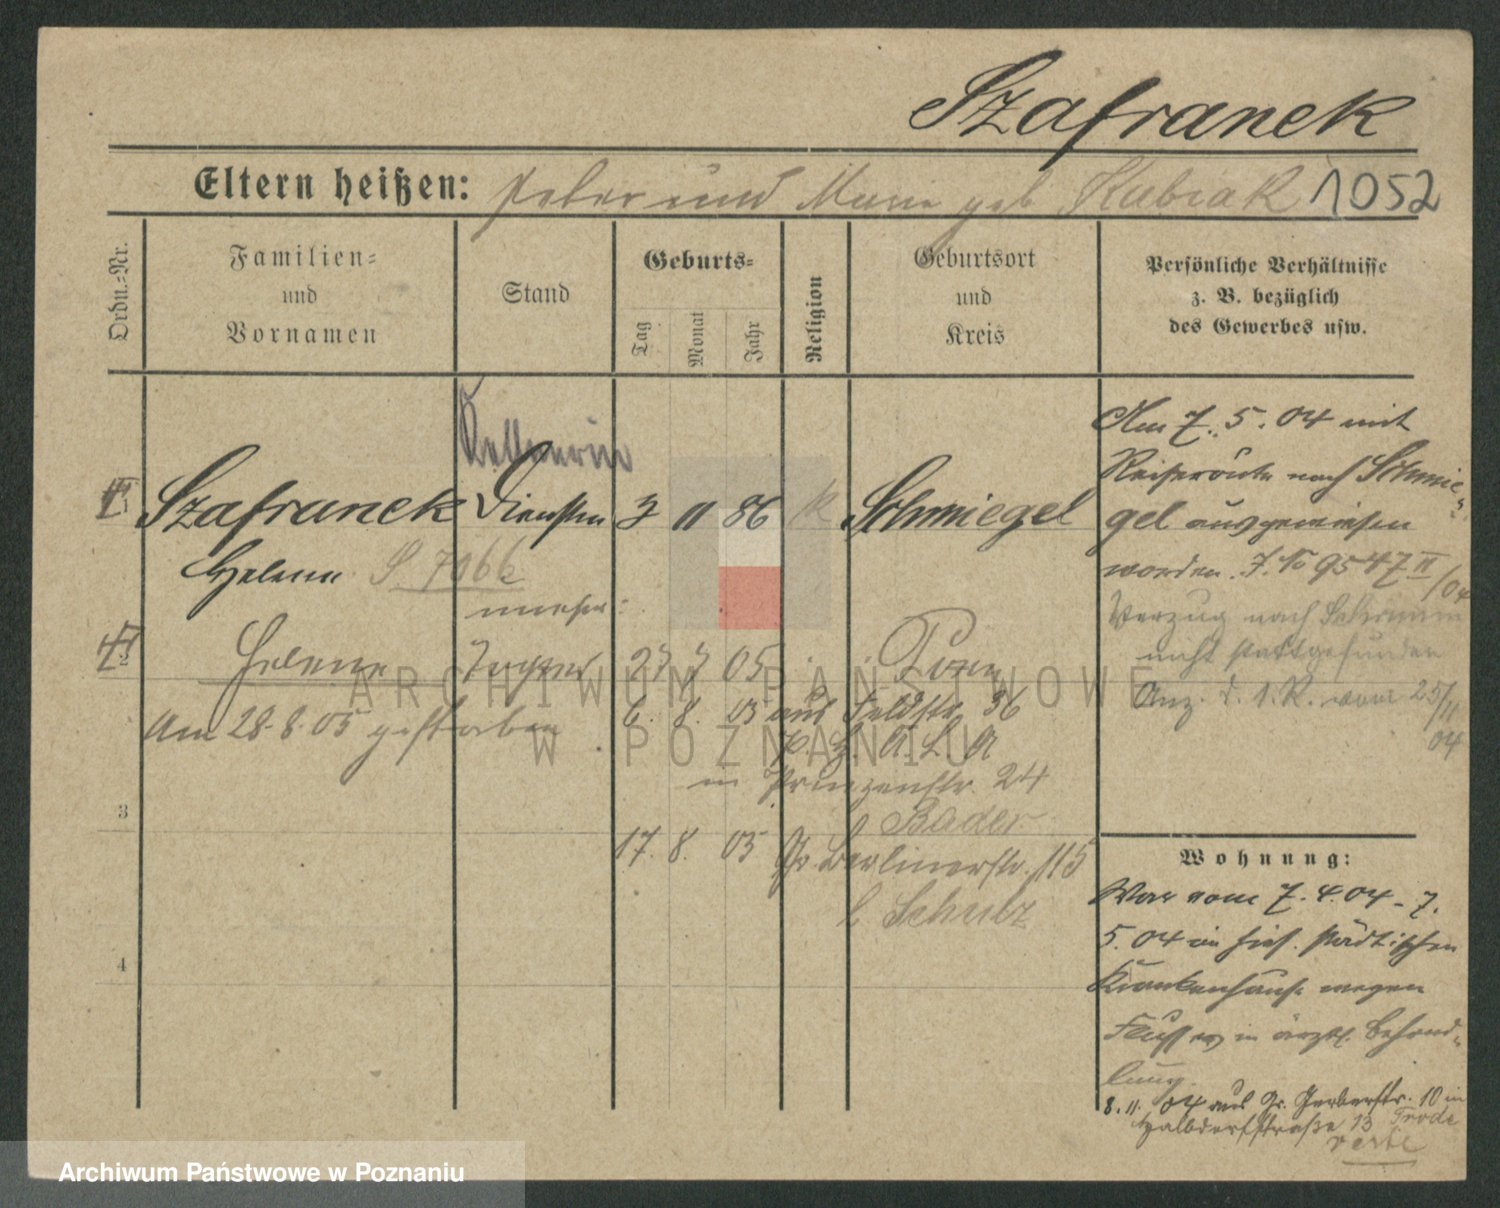 Szafranek
Eltern heißen: Peter und Marie geb Kubiak 1052
Ordn.-Nr.
Familien-
und
Vornamen
Stand
Geburts-
Tag
Monat
Jahr
Religion
Geburtsort
und
Kreis
Persönliche Verhältnisse
z. B. bezüglich
des Gewerbes usw.
Kellnerin
1 Szafranek Dienstm 3 11 86 K Schmiegel
Helene
2 Helene Tochter 27 7 05 Posen
Am 28.8.05 gestorben
6. 8. 05 aus Feldstr. 36
in Prinzenstr. 24
Bader
3
17. 8. 05 Gr Berlinerstr. 115
b Schulz
4
Am 7. 5. 04 mit
Reiseroute nach Schmie-
gel ausgewiesen
worden. J. No 9547 II/04
Verzug nach Schrimm
nicht stattgefunden
Anz. d. 1. R. vom 25/11
04
Wohnung:
War vom 7. 4. 04 - 7.
5. 04 im hies. städtischen
Krankenhause wegen
in ärztl. Behand-
lung.
8. 11. 04 aus Gr. Gerberstr. 10 in
Halbdorfstraße 13
verte
ARCHIWUM PAŃSTWOWE
W POZNANIU
Archiwum Państwowe w Poznaniu